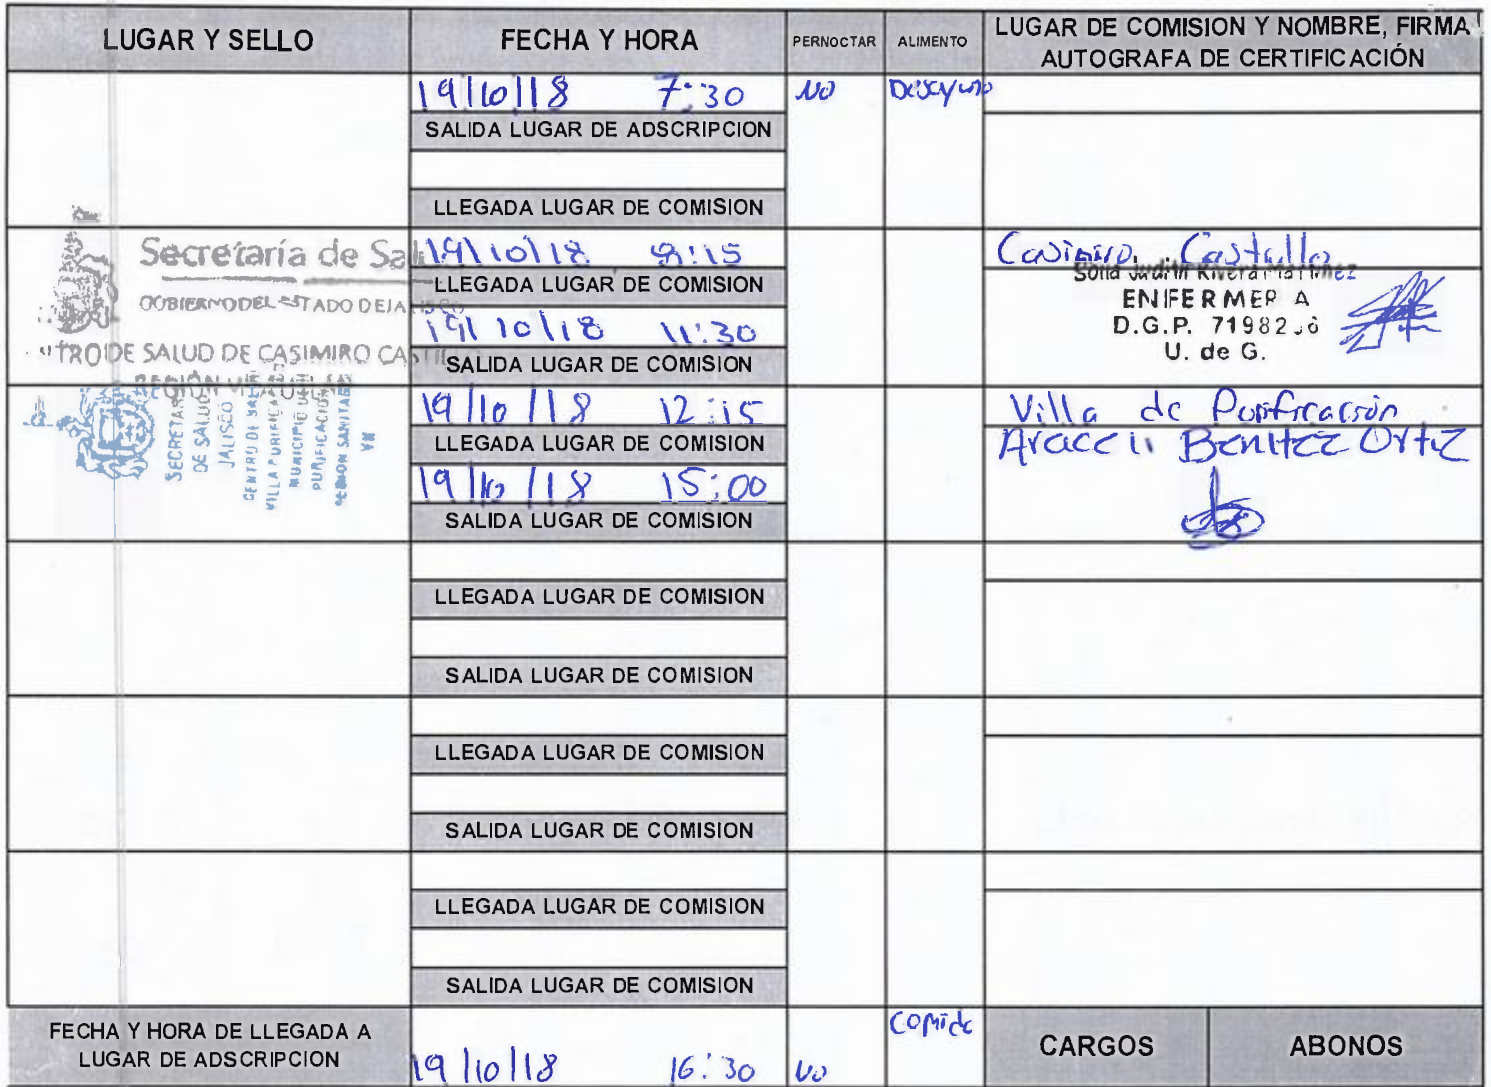 LUGAR Y SELLO FECHA Y HORA PERNOCTAR ALIMENTO LUGAR DE COMISION Y NOMBRE, FIRMA
AUTOGRAFA DE CERTIFICACIÓN
19/10/18 7:30 NO Desayuno
SALIDA LUGAR DE ADSCRIPCION
LLEGADA LUGAR DE COMISION
Secretaría de Sal
GOBIERNO DEL ESTADO DE JALISCO
DE SALUD DE CASIMIRO CASTILLO
19/10/18 9:15 Casimiro Castillo
LLEGADA LUGAR DE COMISION
Judith Rivera Martinez
ENFERMERA
D.G.P.
U. de G.
19/10/18 11:30
SALIDA LUGAR DE COMISION
SECRETARIA
DE SALUD
JALISCO
CENTRO DE SALUD
VILLA PURIFICACION
MUNICIPIO
PURIFICACION
REGION SANITARIA
VII
19/10/18 12:15 Villa de Purificación
LLEGADA LUGAR DE COMISION Araceli Benitez Ortiz
19/10/18 15:00
SALIDA LUGAR DE COMISION
LLEGADA LUGAR DE COMISION
SALIDA LUGAR DE COMISION
LLEGADA LUGAR DE COMISION
SALIDA LUGAR DE COMISION
LLEGADA LUGAR DE COMISION
SALIDA LUGAR DE COMISION
FECHA Y HORA DE LLEGADA A
LUGAR DE ADSCRIPCION
19/10/18 16:30 NO Comida
CARGOS ABONOS